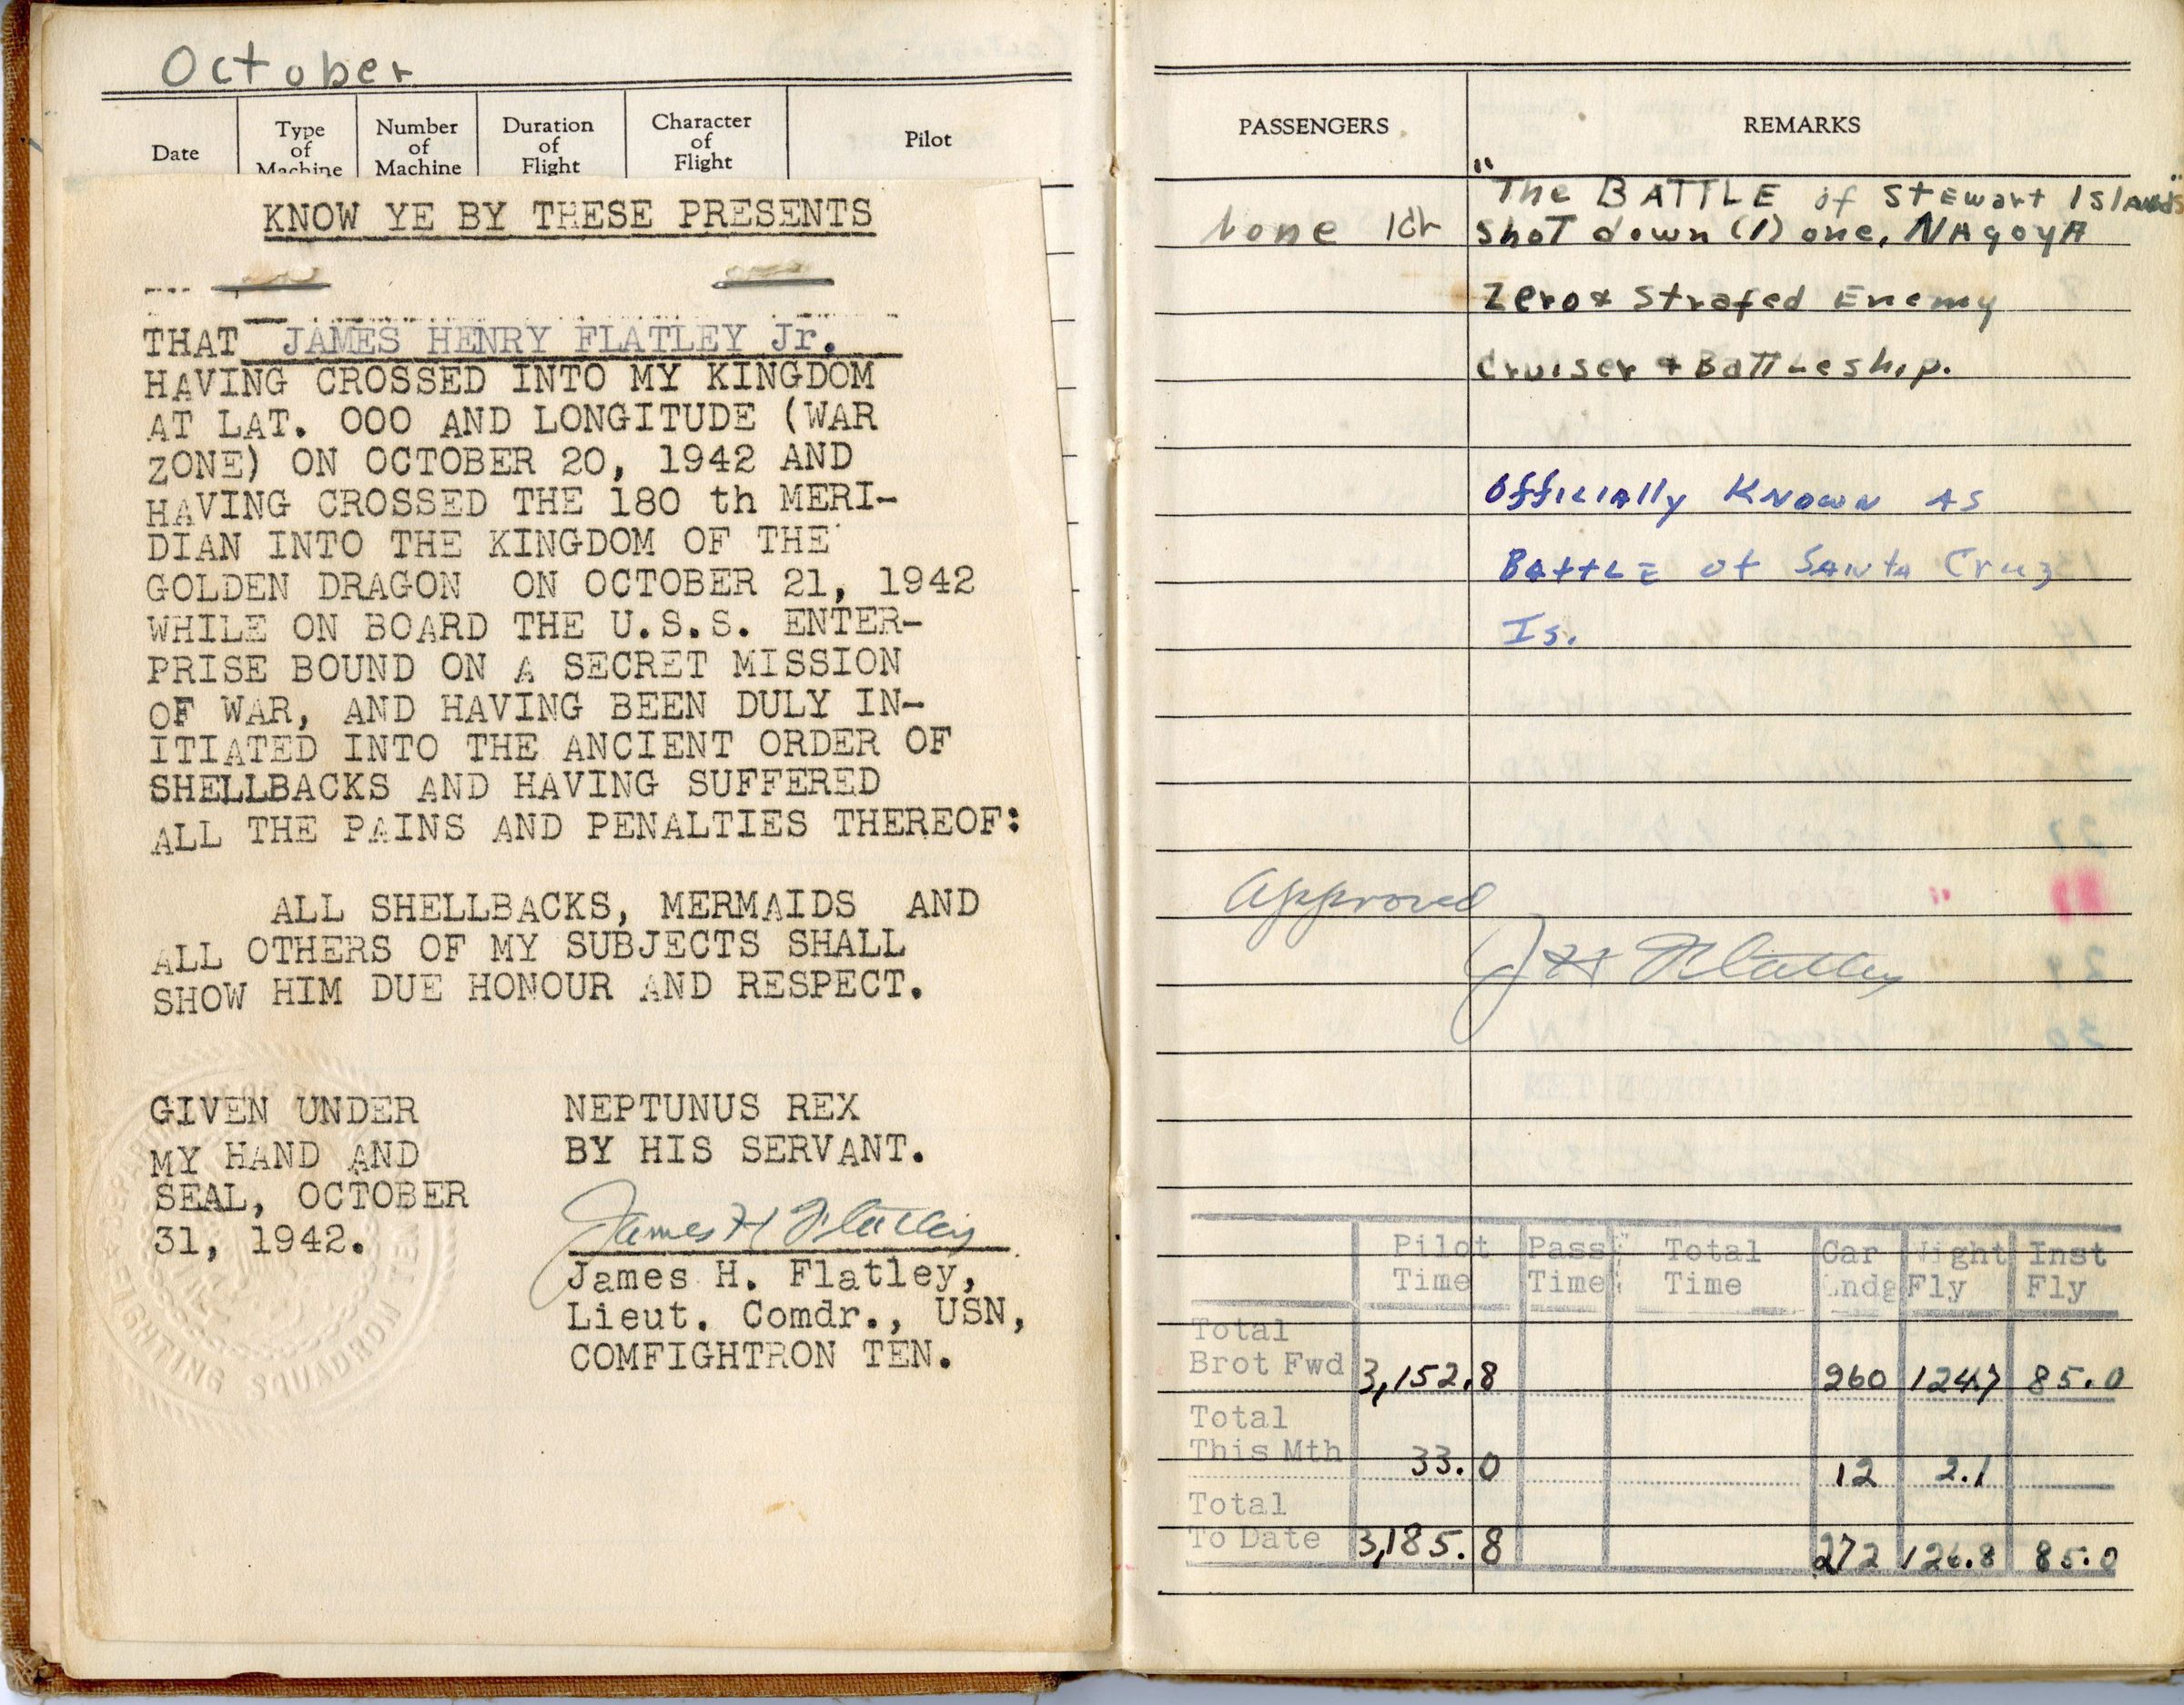 October
Date
Type of Machine
Number of Machine
Duration of Flight
Character of Flight
Pilot
KNOW YE BY THESE PRESENTS
THAT JAMES HENRY FLATLEY Jr.
HAVING CROSSED INTO MY KINGDOM
AT LAT. 000 AND LONGITUDE (WAR
ZONE) ON OCTOBER 20, 1942 AND
HAVING CROSSED THE 180 th MERI-
DIAN INTO THE KINGDOM OF THE
GOLDEN DRAGON ON OCTOBER 21, 1942
WHILE ON BOARD THE U.S.S. ENTER-
PRISE BOUND ON A SECRET MISSION
OF WAR, AND HAVING BEEN DULY IN-
ITIATED INTO THE ANCIENT ORDER OF
SHELLBACKS AND HAVING SUFFERED
ALL THE PAINS AND PENALTIES THEREOF:
ALL SHELLBACKS, MERMAIDS AND
ALL OTHERS OF MY SUBJECTS SHALL
SHOW HIM DUE HONOUR AND RESPECT.
GIVEN UNDER
MY HAND AND
SEAL, OCTOBER
31, 1942.
FIGHTING SQUADRON TEN
NEPTUNUS REX
BY HIS SERVANT.
James H Flatley
James H. Flatley,
Lieut. Comdr., USN,
COMFIGHTRON TEN.
PASSENGERS
REMARKS
"The BATTLE of Stewart Islands"
None
Shot down (1) one, NAgoyA
Zero & Strafed Enemy
Cruiser & Battleship.
Officially Known As
Battle of Santa Cruz
Is.
Approved
J H Flatley
Pilot Time Pass Time Total Time Car Lndg Night Fly Inst Fly
Total Brot Fwd 3,152.8 260 124.7 85.0
Total This Mth 33.0 12 2.1
Total To Date 3,185.8 272 126.8 85.0